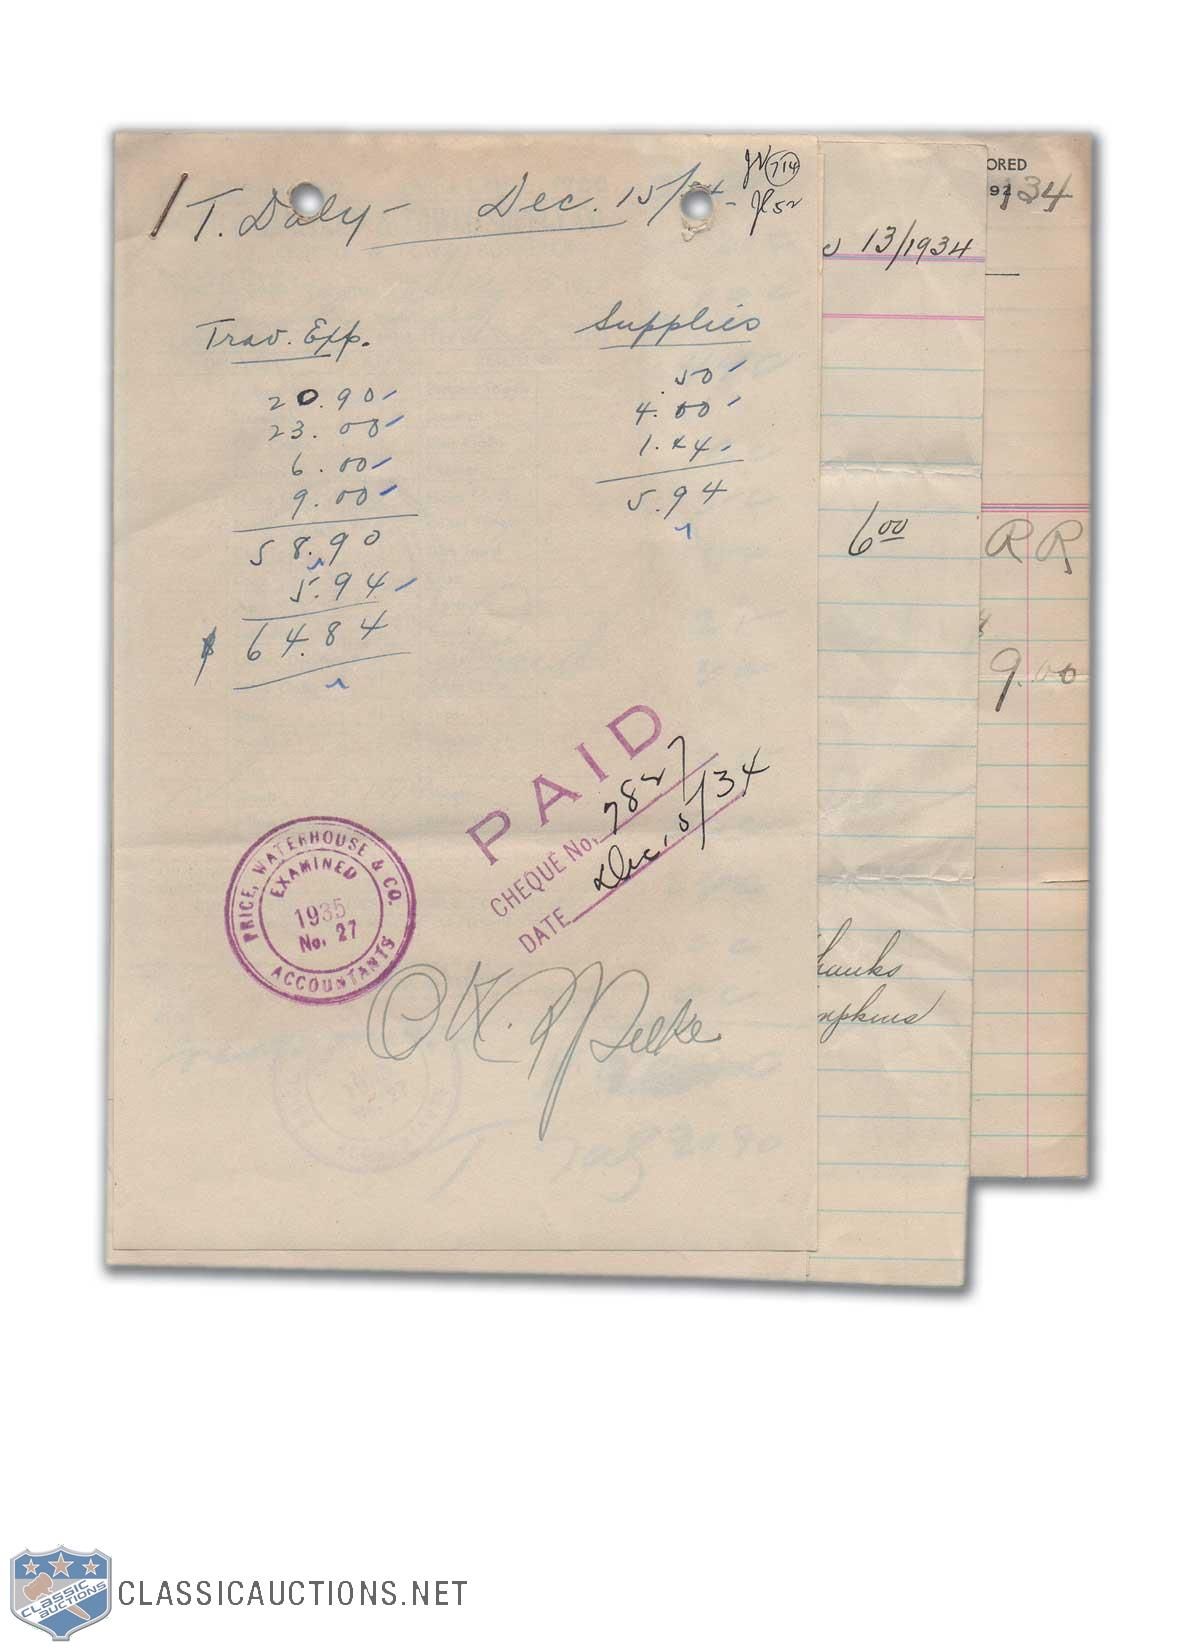 T. Daly - Dec. 15/34 -
714
Trav. Exp.
20.90
23.00
6.00
9.00
58.90
5.94
$ 64.84
Supplies
.50
4.00
1.44
5.94
PAID
CHEQUE No. 7827
DATE Dec. 15/34
PRICE, WATERHOUSE & CO.
EXAMINED
1935
No. 27
ACCOUNTANTS
OK.
13/1934
6 00
hanks
mpkins
ORED
92
134
R R
9.00
CLASSIC AUCTIONS
CLASSICAUCTIONS.NET